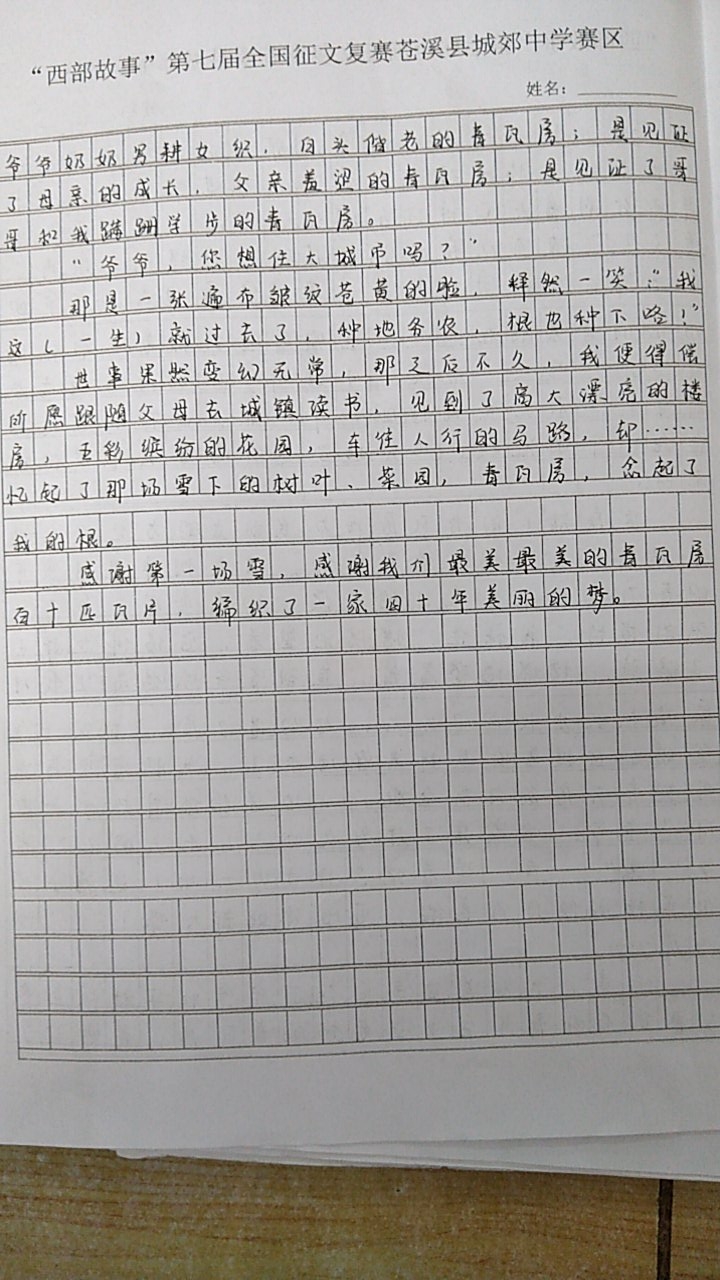 “西部故事”第七届全国征文复赛苍溪县城郊中学赛区
姓名：
爷爷奶奶男耕女织，白头偕老的青瓦房；是见证
了母亲的成长，父亲羞涩的青瓦房；是见证了哥
哥和我蹒跚学步的青瓦房。
“爷爷，您想住大城市吗？”
那是一张遍布皱纹苍黄的脸，释然一笑：“我
这（一生）就过去了，种地务农，根也种下咯！”
世事果然变幻无常，那之后不久，我便得偿
所愿跟随父母去城镇读书，见到了高大漂亮的楼
房，五彩缤纷的花园，车住人行的马路，却……
忆起了那场雪下的树叶、菜园，青瓦房，念起了
我的根。
感谢第一场雪，感谢我们最美最美的青瓦房
百十匹瓦片，编织了一家四十年美丽的梦。